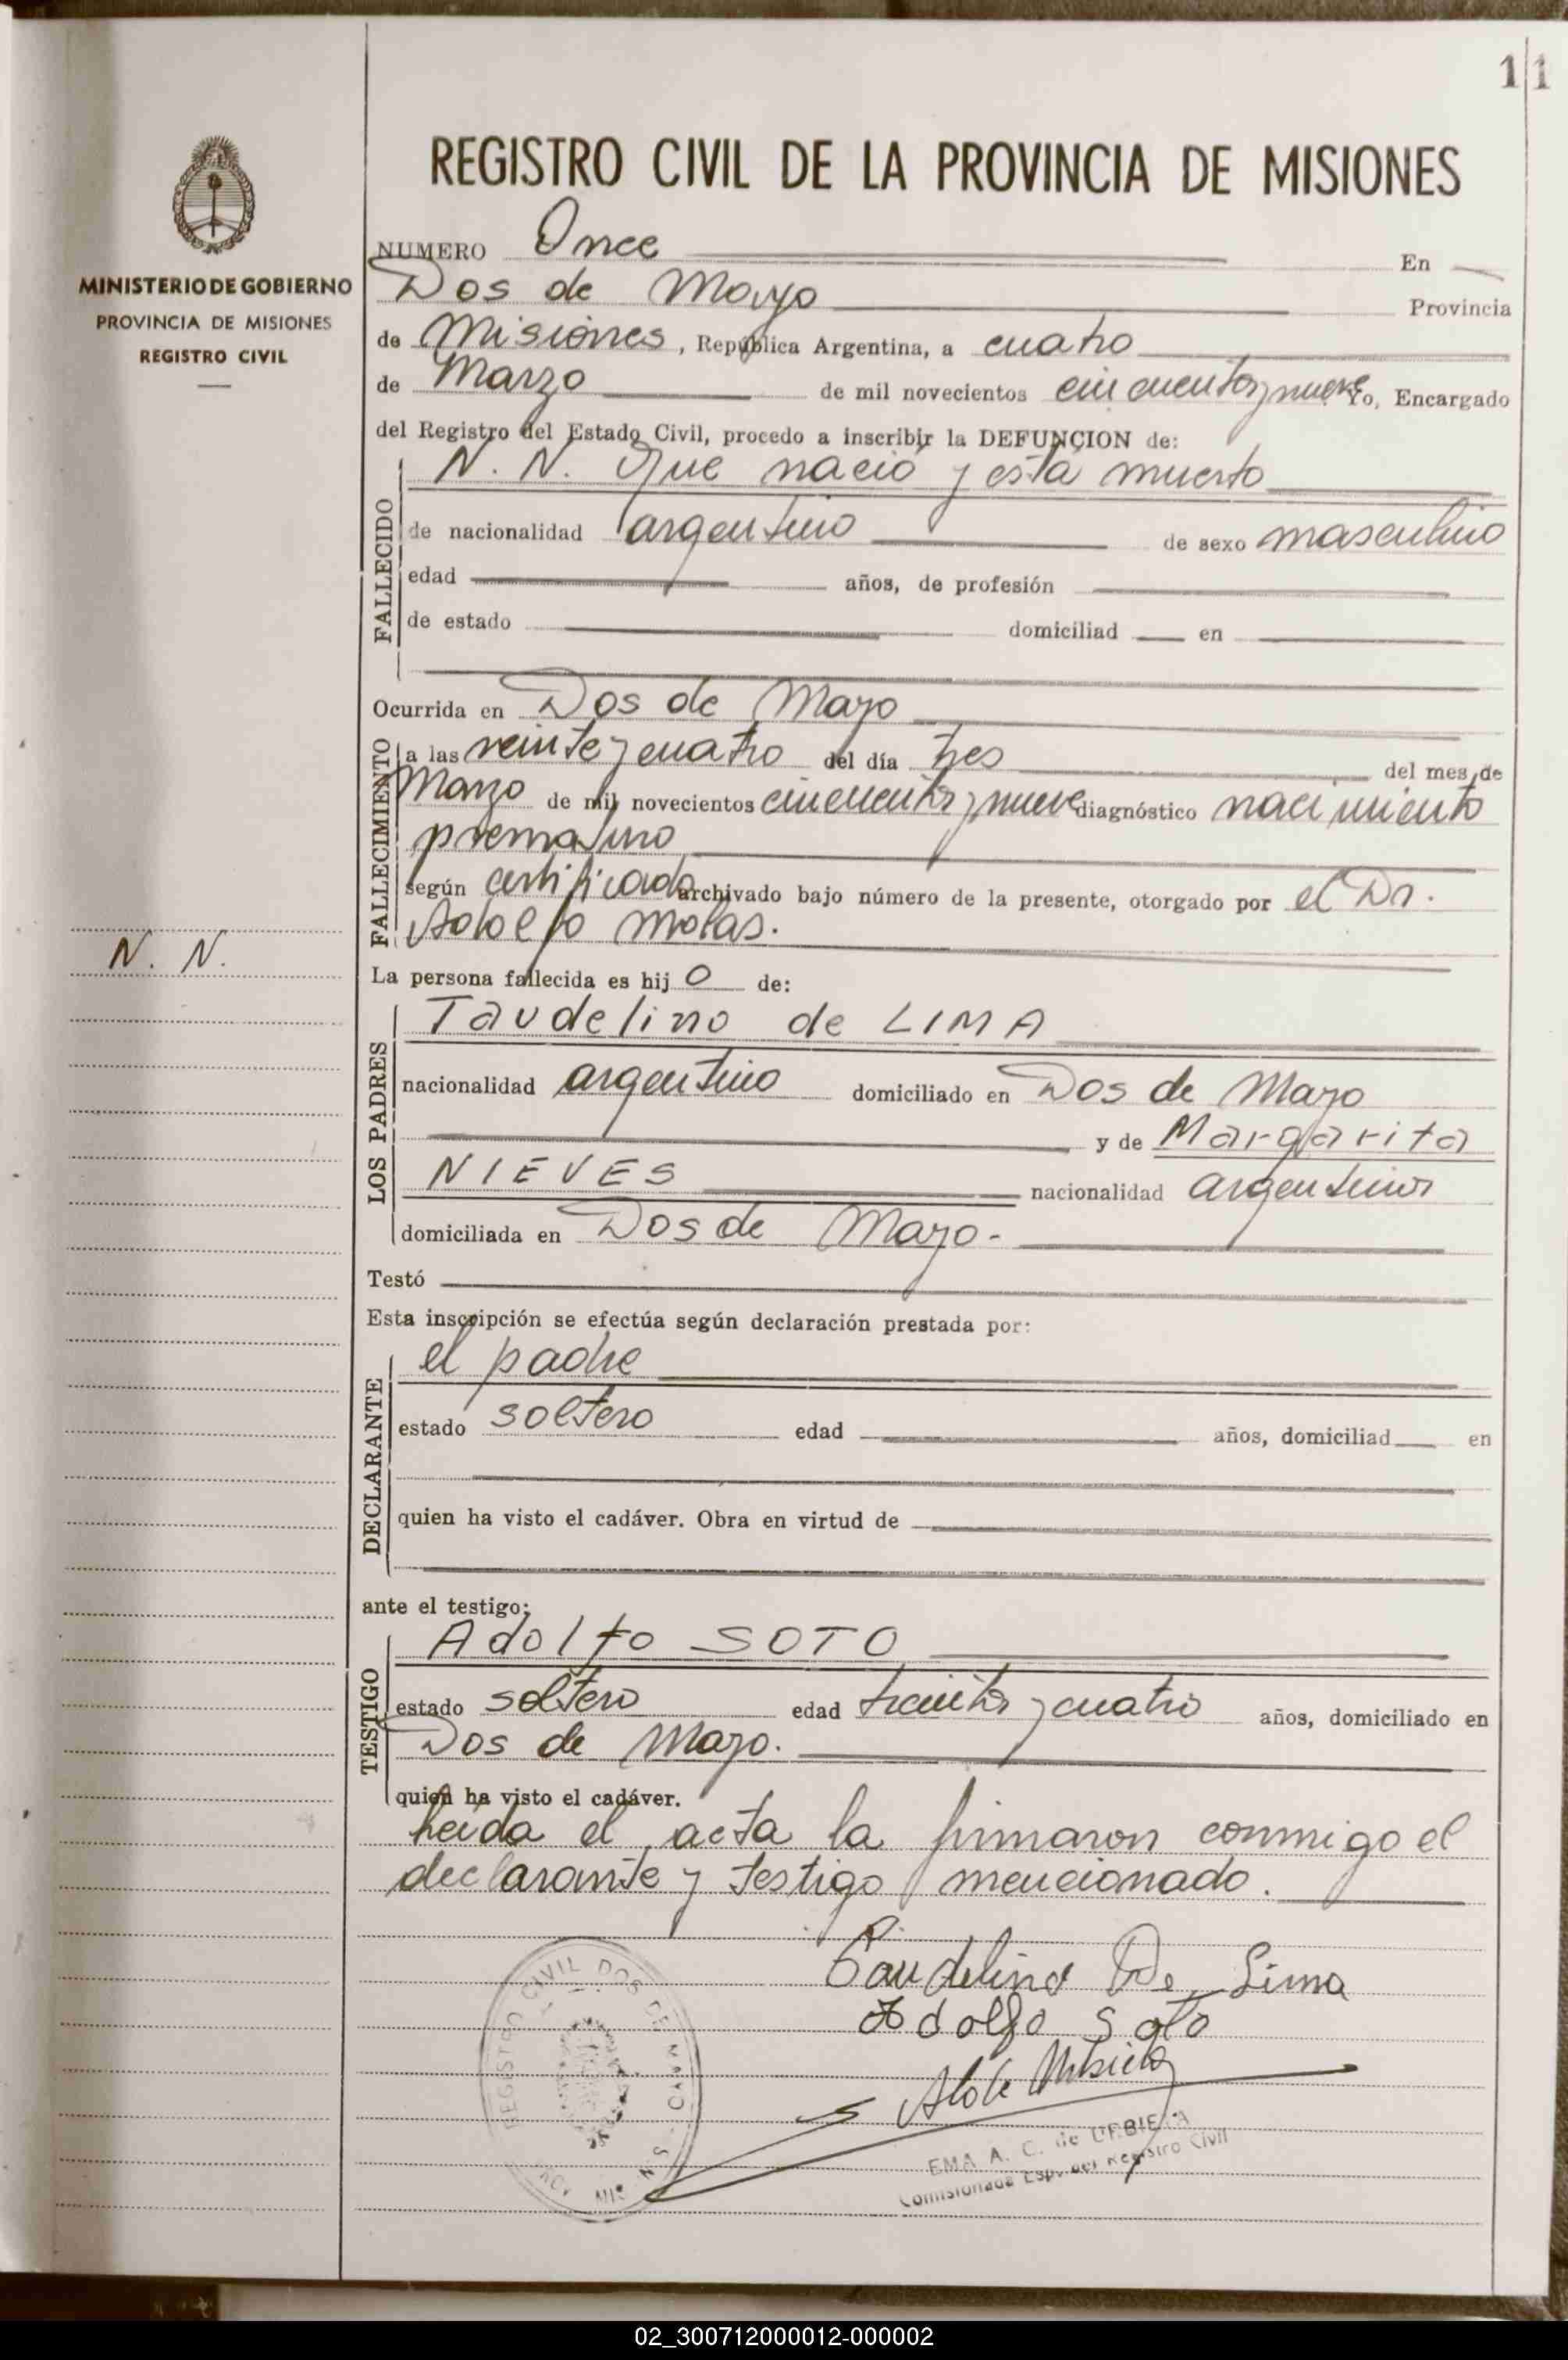 11
REGISTRO CIVIL DE LA PROVINCIA DE MISIONES
MINISTERIO DE GOBIERNO
PROVINCIA DE MISIONES
REGISTRO CIVIL
NUMERO Once En
Dos de Mayo Provincia
de Misiones, República Argentina, a cuatro
de Marzo de mil novecientos cincuenta y nueve Yo, Encargado
del Registro del Estado Civil, procedo a inscribir la DEFUNCION de:
FALLECIDO
N. N. Que nació y está muerto
de nacionalidad argentino de sexo masculino
edad años, de profesión
de estado domiciliad en
Ocurrida en Dos de Mayo
FALLECIMIENTO
a las veinte y cuatro del día tres del mes de
Marzo de mil novecientos cincuenta y nueve diagnóstico nacimiento
prematuro
según certificado archivado bajo número de la presente, otorgado por el Dr.
Adolfo Molas.
N. N.
La persona fallecida es hijo de:
LOS PADRES
Taudelino de LIMA
nacionalidad argentino domiciliado en Dos de Mayo
y de Margarita
NIEVES nacionalidad argentina
domiciliada en Dos de Mayo.-
Testó
Esta inscripción se efectúa según declaración prestada por:
DECLARANTE
el padre
estado soltero edad años, domiciliad en
quien ha visto el cadáver. Obra en virtud de
ante el testigo:
TESTIGO
Adolfo SOTO
estado soltero edad treinta y cuatro años, domiciliado en
Dos de Mayo.
quien ha visto el cadáver.
Leída el acta la firmaron conmigo el
declarante y testigo mencionado.
Taudelino De Lima
Adolfo Soto
REGISTRO CIVIL DOS DE MAYO
EMA A. C. de URBIETA
Comisionada Esp. del Registro Civil
02_300712000012-000002